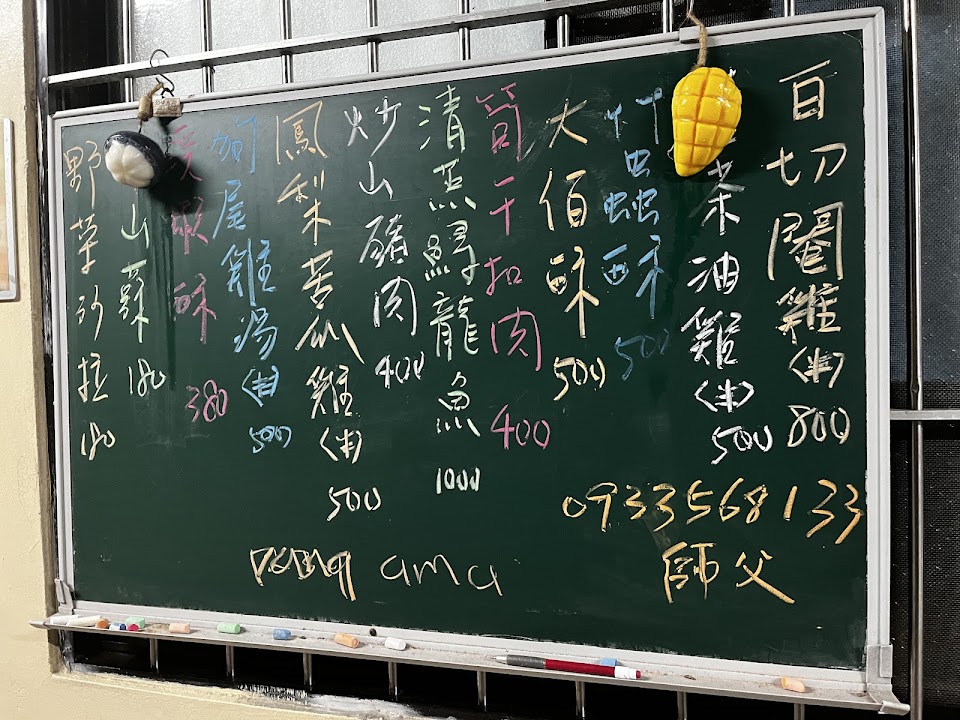 百切閹雞(半)800
茶油雞(半)500
竹蟲酥500
大佰酥500
筍干扣肉400
清蒸鱘龍魚1000
炒山豬肉400
鳳梨苦瓜雞(半)500
狗尾雞湯(半)500
溪蝦酥380
山蘇180
野菜砂拉180
0933568133
師父
ama